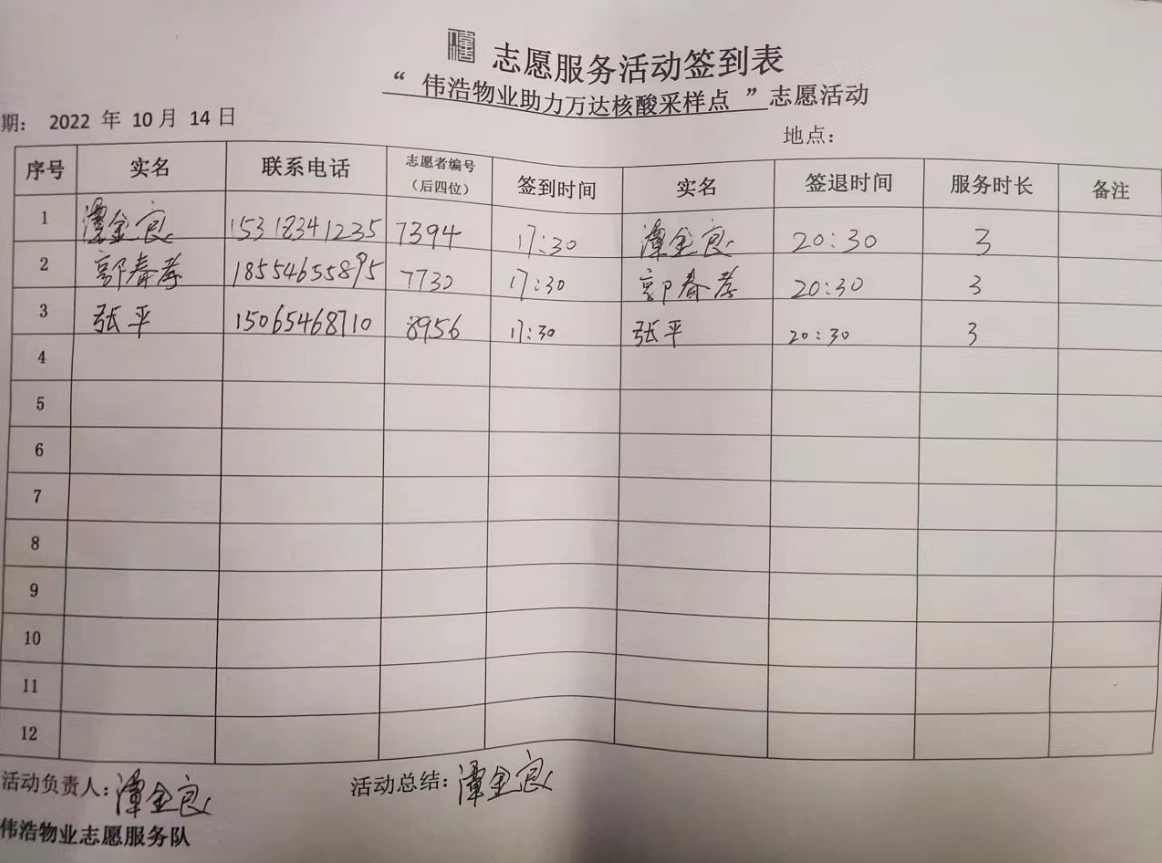 志愿服务活动签到表
“ 伟浩物业助力万达核酸采样点 ”志愿活动
期： 2022 年 10 月 14 日
地点：
序号 实名 联系电话 志愿者编号（后四位） 签到时间 实名 签退时间 服务时长 备注
1 潭金良 15318341235 7394 17:30 潭金良 20:30 3
2 郭春 18554655895 7732 17:30 郭春 20:30 3
3 张平 15065468710 8956 17:30 张平 20:30 3
4
5
6
7
8
9
10
11
12
活动负责人：潭金良 活动总结：潭金良
伟浩物业志愿服务队